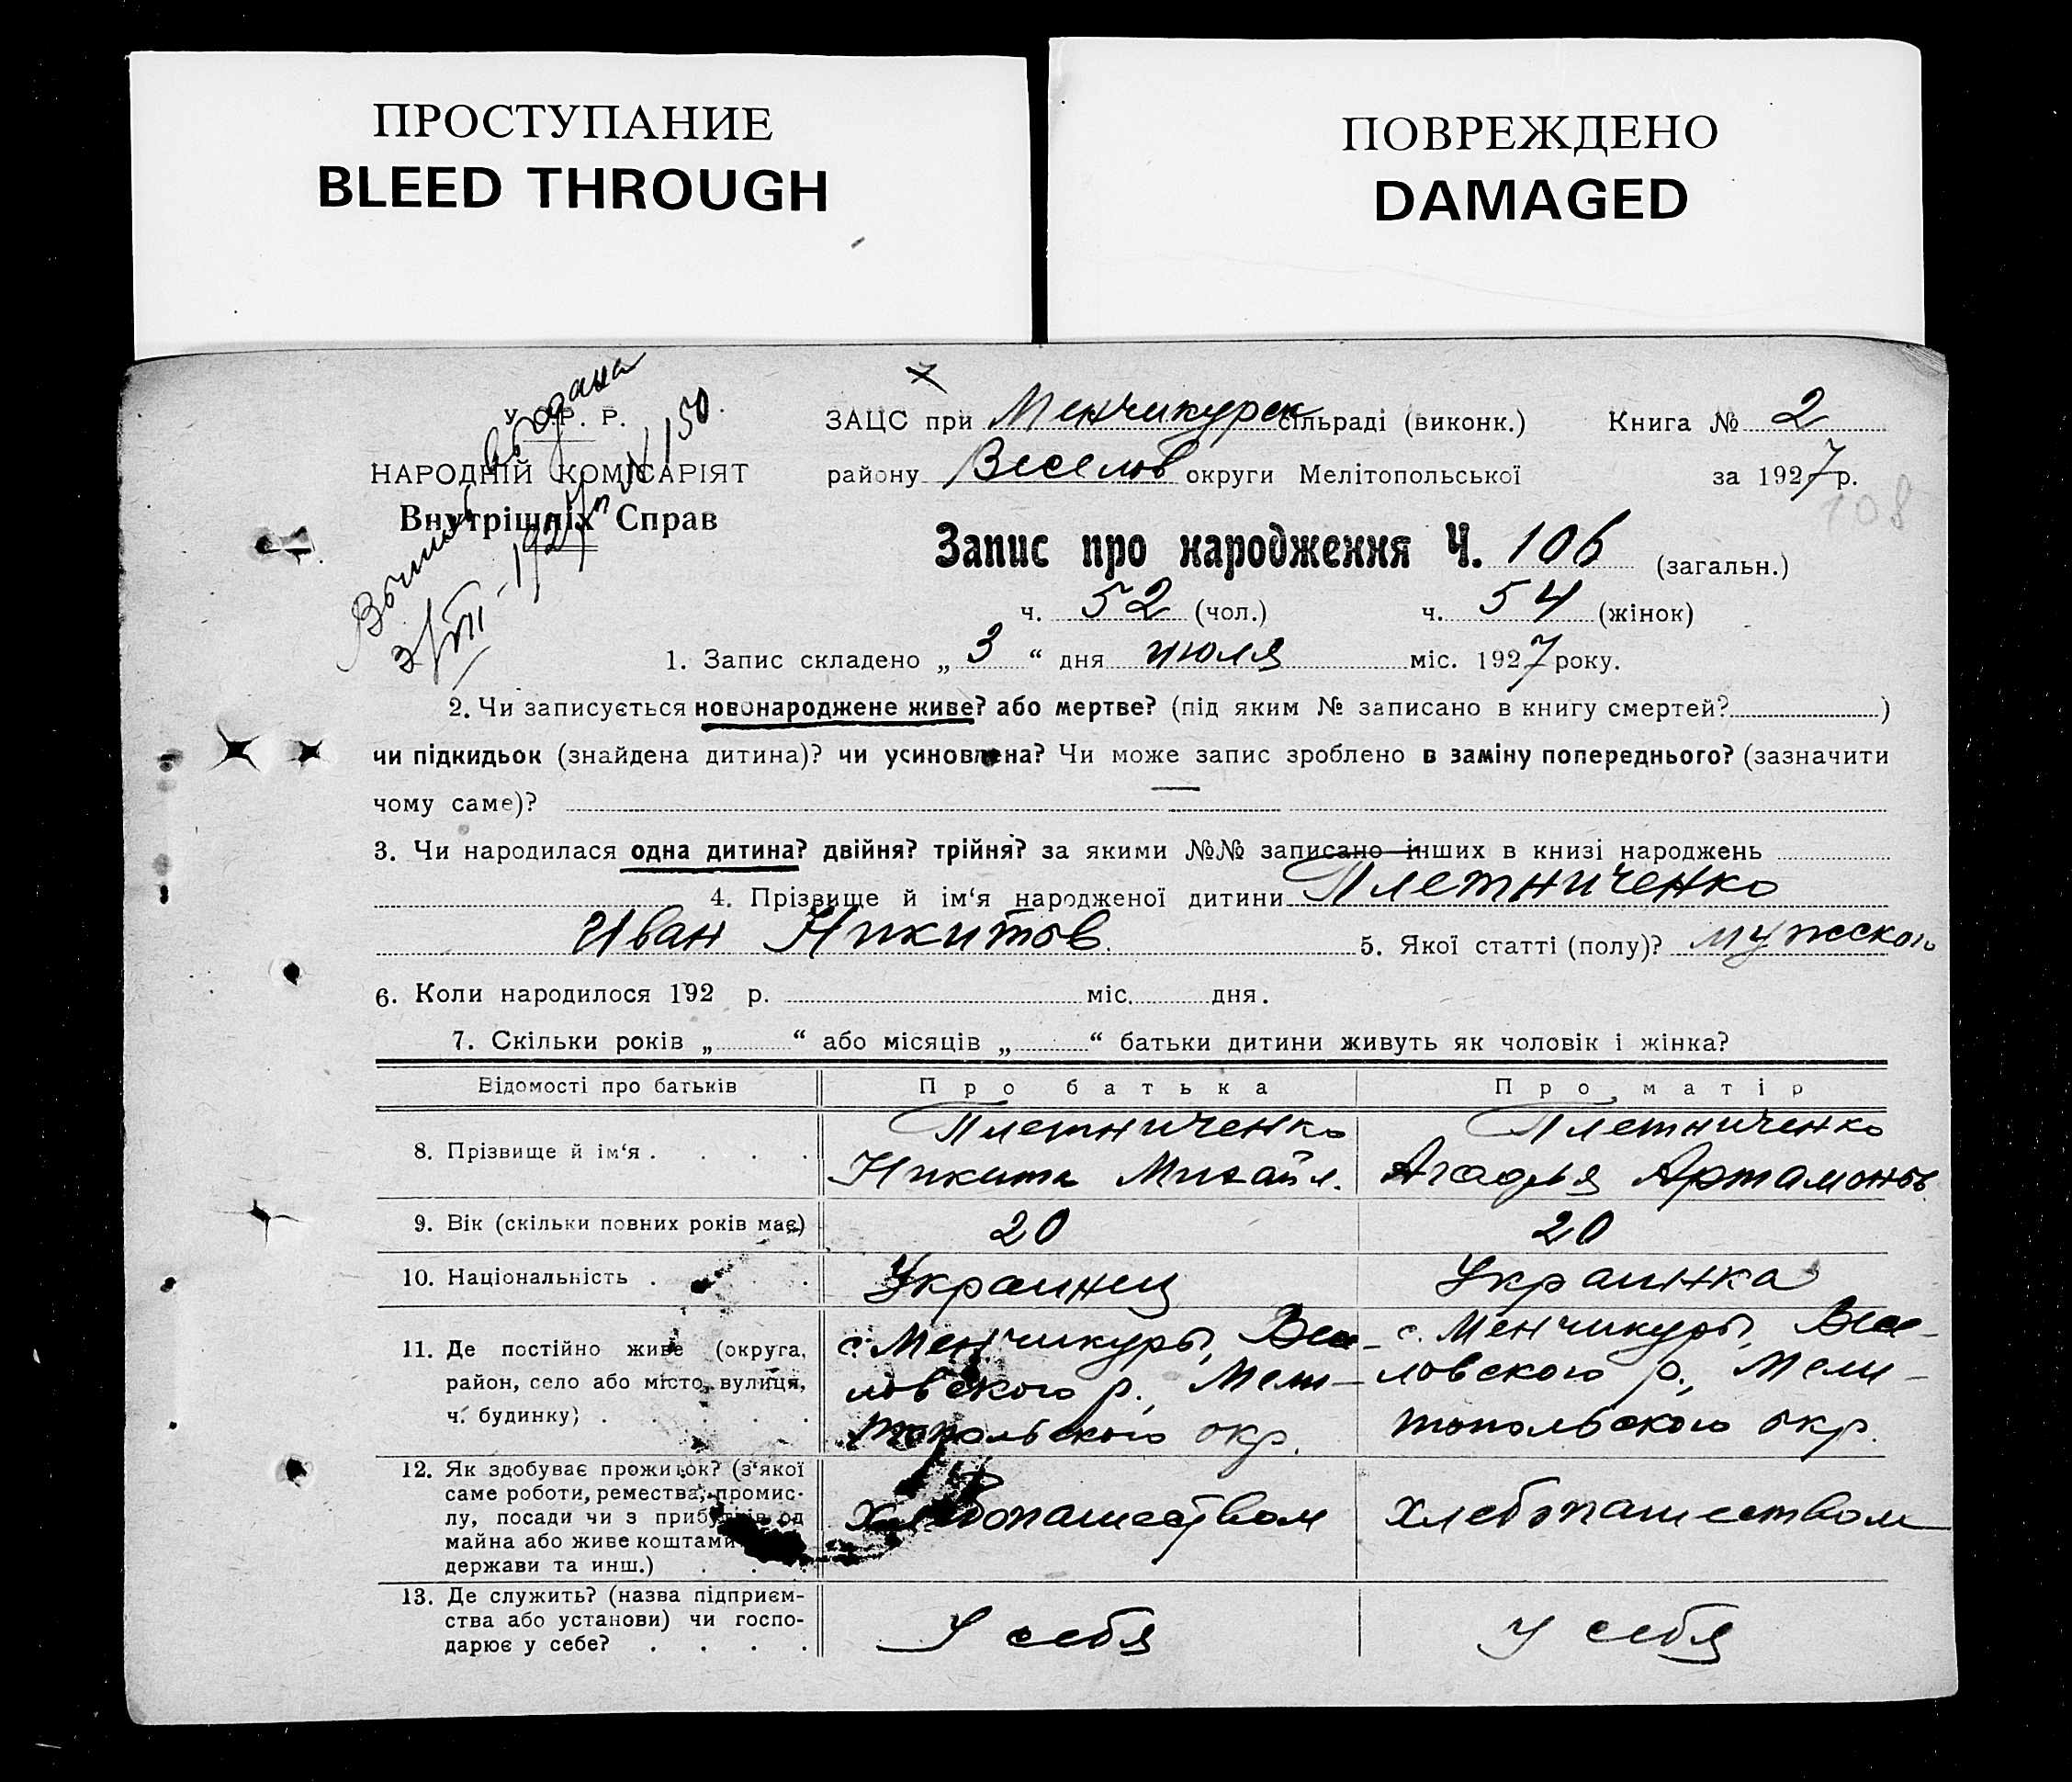 ПРОСТУПАНИЕ
BLEED THROUGH
ПОВРЕЖДЕНО
DAMAGED
У. С. Р. Р.
НАРОДНІЙ КОМІСАРІЯТ
Внутрішніх Справ
выдана
3/VII - 1927 г. № 150.
ЗАЦС при Менчикурск сільраді (виконк.) Книга № 2
району Веселов округи Мелітопольської за 1927 р.
108
Запис про народження Ч. 106 (загальн.)
ч. 52 (чол.) ч. 54 (жінок)
1. Запис складено „ 3 “ дня июля міс. 1927 року.
2. Чи записується новонароджене живе? або мертве? (під яким № записано в книгу смертей? )
чи підкидьок (знайдена дитина)? чи усиновлена? Чи може запис зроблено в заміну попереднього? (зазначити
чому саме)? —
3. Чи народилася одна дитина? двійня? трійня? за якими №№ записано інших в книзі народжень
4. Прізвище й ім‘я народженої дитини Плетниченко
Иван Никитов. 5. Якої статті (полу)? мужского
6. Коли народилося 192 р. міс. дня.
7. Скільки років „ “ або місяців „ “ батьки дитини живуть як чоловік і жінка?
Відомості про батьків Про батька Про матір
8. Прізвище й ім‘я . . . . Плетниченко Никита Михайл. Плетниченко Агафья Артамонов.
9. Вік (скільки повних років має) 20 20
10. Національність . . . Украинец Украинка
11. Де постійно живе (округа, с. Менчикуры, Весе- с. Менчикуры, Весе-
район, село або місто, вулиця, ловского р., Мели- ловского р., Мели-
ч. будинку) . . . . . топольского окр. топольского окр.
12. Як здобуває прожиток? (з‘якої
саме роботи, ремества, промис-
лу, посади чи з прибутків од Хлебопашеством Хлебопашеством
майна або живе коштами
держави та инш.) . . .
13. Де служить? (назва підприєм-
ства або установи) чи госпо- У себя У себя
дарює у себе? . . . .